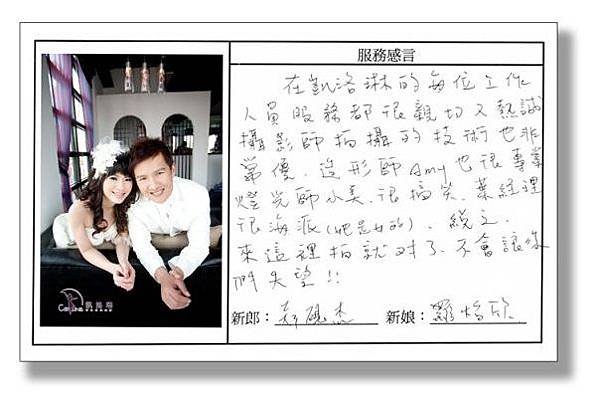 服務感言
在凱洛琳的每位工作
人員服務都很親切又熱誠
攝影師拍攝的技術也非
常優、造形師Amy也很專業
燈光師小美、很搞笑、葉經理
很海派(她是女的)、總之、
來這裡拍就对了、不會讓你
們失望!!
新郎： 杰 新娘：羅怡欣
凱洛琳